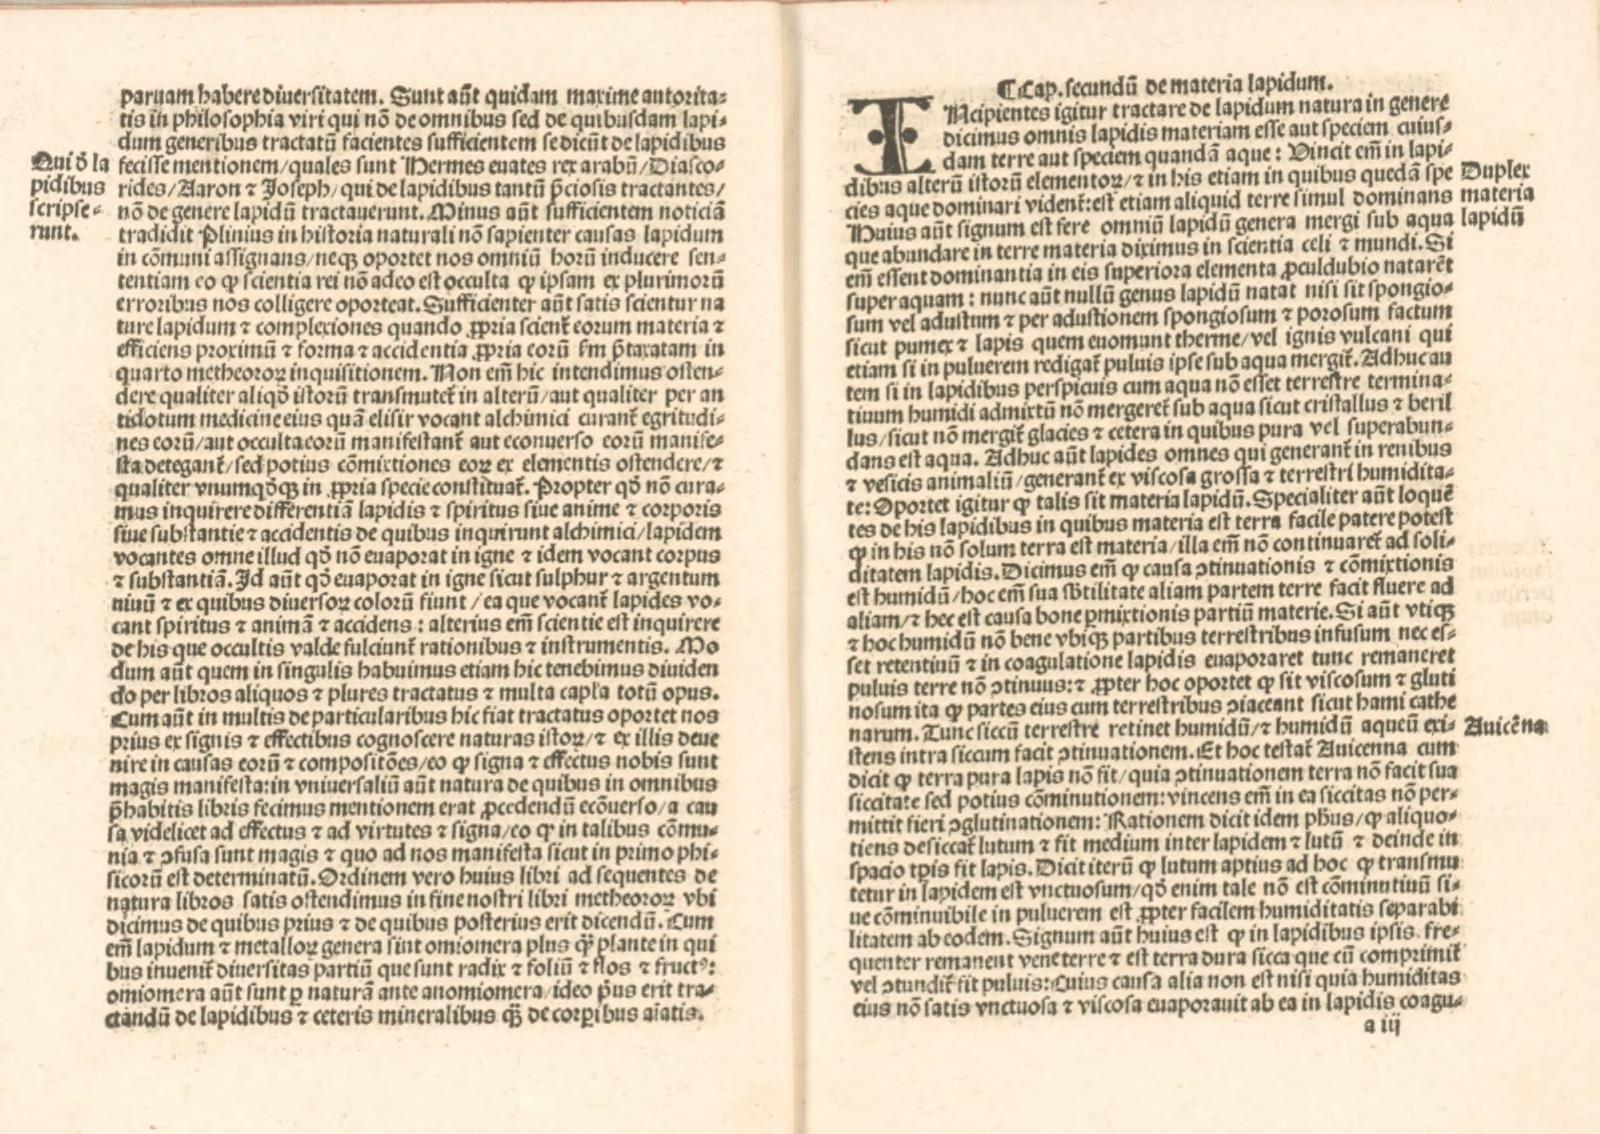 paruam habere diuersitatem. Sunt aūt quidam maxime autorita⸗
tis in philosophia viri qui nō de omnibus sed de quibusdam lapi⸗
dum generibus tractatū facientes sufficientem se dicūt de lapidibus
Qui d̄ la
pidibus
scripse⸗
runt.
fecisse mentionem/quales sunt Hermes euates rex arabū/Diasco⸗
rides/Aaron ⁊ Joseph/qui de lapidibus tantū p̄ciosis tractantes/
nō de genere lapidū tractauerunt. Minus aūt sufficientem noticiā
tradidit Plinius in historia naturali nō sapienter causas lapidum
in cōmuni assignans/neqꝫ oportet nos omniū horū inducere sen⸗
tentiam eo ꝙ scientia rei nō adeo est occulta ꝙ ipsam ex plurimorū
erroribus nos colligere oporteat. Sufficienter aūt satis scientur na
ture lapidum ⁊ complexiones quando ꝓpria scient̄ eorum materia ⁊
efficiens proximū ⁊ forma ⁊ accidentia ꝓpria eorū fm p̄taxatam in
quarto metheoroꝝ inquisitionem. Non em̄ hic intendimus osten⸗
dere qualiter aliqd̄ istorū transmutet̄ in alterū/aut qualiter per an
tidotum medicine eius quā elisir vocant alchimici curant̄ egritudi⸗
nes eorū/aut occulta eorū manifestant̄ aut econuerso eorū manife⸗
sta detegant̄/sed potius cōmixtiones eoꝝ ex elementis ostendere/⁊
qualiter vnumqd̄qꝫ in ꝓpria specie constituat̄. Propter qd̄ nō cura⸗
mus inquirere differentiā lapidis ⁊ spiritus siue anime ⁊ corporis
siue substantie ⁊ accidentis de quibus inquirunt alchimici/lapidem
vocantes omne illud qd̄ nō euaporat in igne ⁊ idem vocant corpus
⁊ substantiā. Id aūt qd̄ euaporat in igne sicut sulphur ⁊ argentum
niuū ⁊ ex quibus diuersoꝝ colorū fiunt/ea que vocant̄ lapides vo⸗
cant spiritus ⁊ animā ⁊ accidens: alterius em̄ scientie est inquirere
de his que occultis valde fulciunt̄ rationibus ⁊ instrumentis. Mo
dum aūt quem in singulis habuimus etiam hic tenebimus diuiden
do per libros aliquos ⁊ plures tractatus ⁊ multa capl'a totū opus.
Cum aūt in multis de particularibus hic fiat tractatus oportet nos
prius ex signis ⁊ effectibus cognoscere naturas istoꝝ/⁊ ex illis deue
nire in causas eorū ⁊ compositōes/eo ꝙ signa ⁊ effectus nobis sunt
magis manifesta: in vniuersaliū aūt natura de quibus in omnibus
p̄habitis libris fecimus mentionem erat ꝓcedendū ecōuerso/a cau
sa videlicet ad effectus ⁊ ad virtutes ⁊ signa/eo ꝙ in talibus cōmu⸗
nia ⁊ ꝯfusa sunt magis ⁊ quo ad nos manifesta sicut in primo phi⸗
sicorū est determinatū. Ordinem vero huius libri ad sequentes de
natura libros satis ostendimus in fine nostri libri metheoroꝝ vbi
dicimus de quibus prius ⁊ de quibus posterius erit dicendū. Cum
em̄ lapidum ⁊ metalloꝝ genera sint omiomera plus qꝫ̄ plante in qui
bus inuenit̄ diuersitas partiū que sunt radix ⁊ foliū ⁊ flos ⁊ fructꝰ:
omiomera aūt sunt ꝑ naturā ante anomiomera/ideo p̄us erit tra⸗
ctandū de lapidibus ⁊ ceteris mineralibus qꝫ̄ de corꝑibus aīatis.
¶Cap. secundū de materia lapidum.
INcipientes igitur tractare de lapidum natura in genere
dicimus omnis lapidis materiam esse aut speciem cuius⸗
dam terre aut speciem quandā aque: Vincit em̄ in lapi⸗
dibus alterū istorū elementoꝝ/⁊ in his etiam in quibus quedā spe
cies aque dominari vident̄: est etiam aliquid terre simul dominans
Duplex
materia
lapidū
Huius aūt signum est fere omniū lapidū genera mergi sub aqua
que abundare in terre materia diximus in scientia celi ⁊ mundi. Si
em̄ essent dominantia in eis superiora elementa ꝓculdubio natarēt
super aquam: nunc aūt nullū genus lapidū natat nisi sit spongio⸗
sum vel adustum ⁊ per adustionem spongiosum ⁊ porosum factum
sicut pumex ⁊ lapis quem euomunt therme/vel ignis vulcani qui
etiam si in puluerem redigat̄ puluis ipse sub aqua mergit̄. Adhuc au
tem si in lapidibus perspicuis cum aqua nō esset terrestre termina⸗
tiuum humidi admixtū nō mergeret̄ sub aqua sicut cristallus ⁊ beril
lus/sicut nō mergit̄ glacies ⁊ cetera in quibus pura vel superabun⸗
dans est aqua. Adhuc aūt lapides omnes qui generant̄ in renibus
⁊ vesicis animaliū/generant̄ ex viscosa grossa ⁊ terrestri humidita⸗
te: Oportet igitur ꝙ talis sit materia lapidū. Specialiter aūt loquē
tes de his lapidibus in quibus materia est terra facile patere potest
ꝙ in his nō solum terra est materia/illa em̄ nō continuaret̄ ad soli⸗
ditatem lapidis. Dicimus em̄ ꝙ causa ꝯtinuationis ⁊ cōmixtionis
est humidū/hoc em̄ sua sb̄tilitate aliam partem terre facit fluere ad
aliam/⁊ hec est causa bone ꝑmixtionis partiū materie. Si aūt vtiqꝫ
⁊ hoc humidū nō bene vbiqꝫ partibus terrestribus infusum nec es⸗
set retentiuū ⁊ in coagulatione lapidis euaporaret tunc remaneret
puluis terre nō ꝯtinuus: ⁊ ꝓpter hoc oportet ꝙ sit viscosum ⁊ gluti
nosum ita ꝙ partes eius cum terrestribus ꝯiaceant sicut hami cathe
narum. Tunc siccū terrestre retinet humidū/⁊ humidū aqueū exi⸗
Auicēna
stens intra siccum facit ꝯtinuationem. Et hoc testat̄ Auicenna cum
dicit ꝙ terra pura lapis nō fit/quia ꝯtinuationem terra nō facit sua
siccitate sed potius cōminutionem: vincens em̄ in ea siccitas nō per⸗
mittit fieri ꝯglutinationem: Rationem dicit idem ph̄us/ꝙ aliquo⸗
tiens desiccat̄ lutum ⁊ fit medium inter lapidem ⁊ lutū ⁊ deinde in
spacio tp̄is fit lapis. Dicit iterū ꝙ lutum aptius ad hoc ꝙ transmu
tetur in lapidem est vnctuosum/qd̄ enim tale nō est cōminutiuū si⸗
ue cōminuibile in puluerem est ꝓpter facilem humiditatis separabi
litatem ab eodem. Signum aūt huius est ꝙ in lapidibus ipsis fre⸗
quenter remanent vene terre ⁊ est terra dura sicca que cū comprimit̄
vel ꝯtundit̄ fit puluis: Cuius causa alia non est nisi quia humiditas
eius nō satis vnctuosa ⁊ viscosa euaporauit ab ea in lapidis coagu⸗
a iij